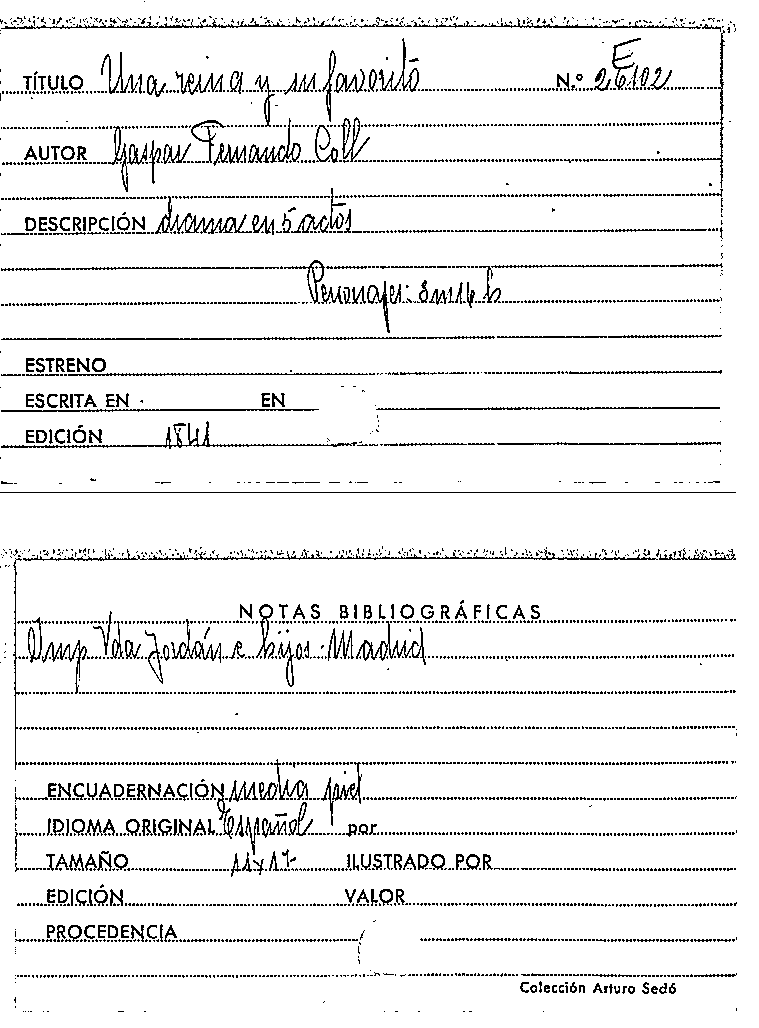 TÍTULO Una reina y su favorito N.º 26102
E
AUTOR Gaspar Fernando Coll
DESCRIPCIÓN drama en 5 actos
Personajes: 8m 16 h
ESTRENO
ESCRITA EN EN
EDICIÓN 1841
NOTAS BIBLIOGRÁFICAS
Imp Vda Jordán e hijos - Madrid
ENCUADERNACIÓN media piel
IDIOMA ORIGINAL Español por
TAMAÑO 11x17 ILUSTRADO POR
EDICIÓN VALOR
PROCEDENCIA
Colección Arturo Sedó